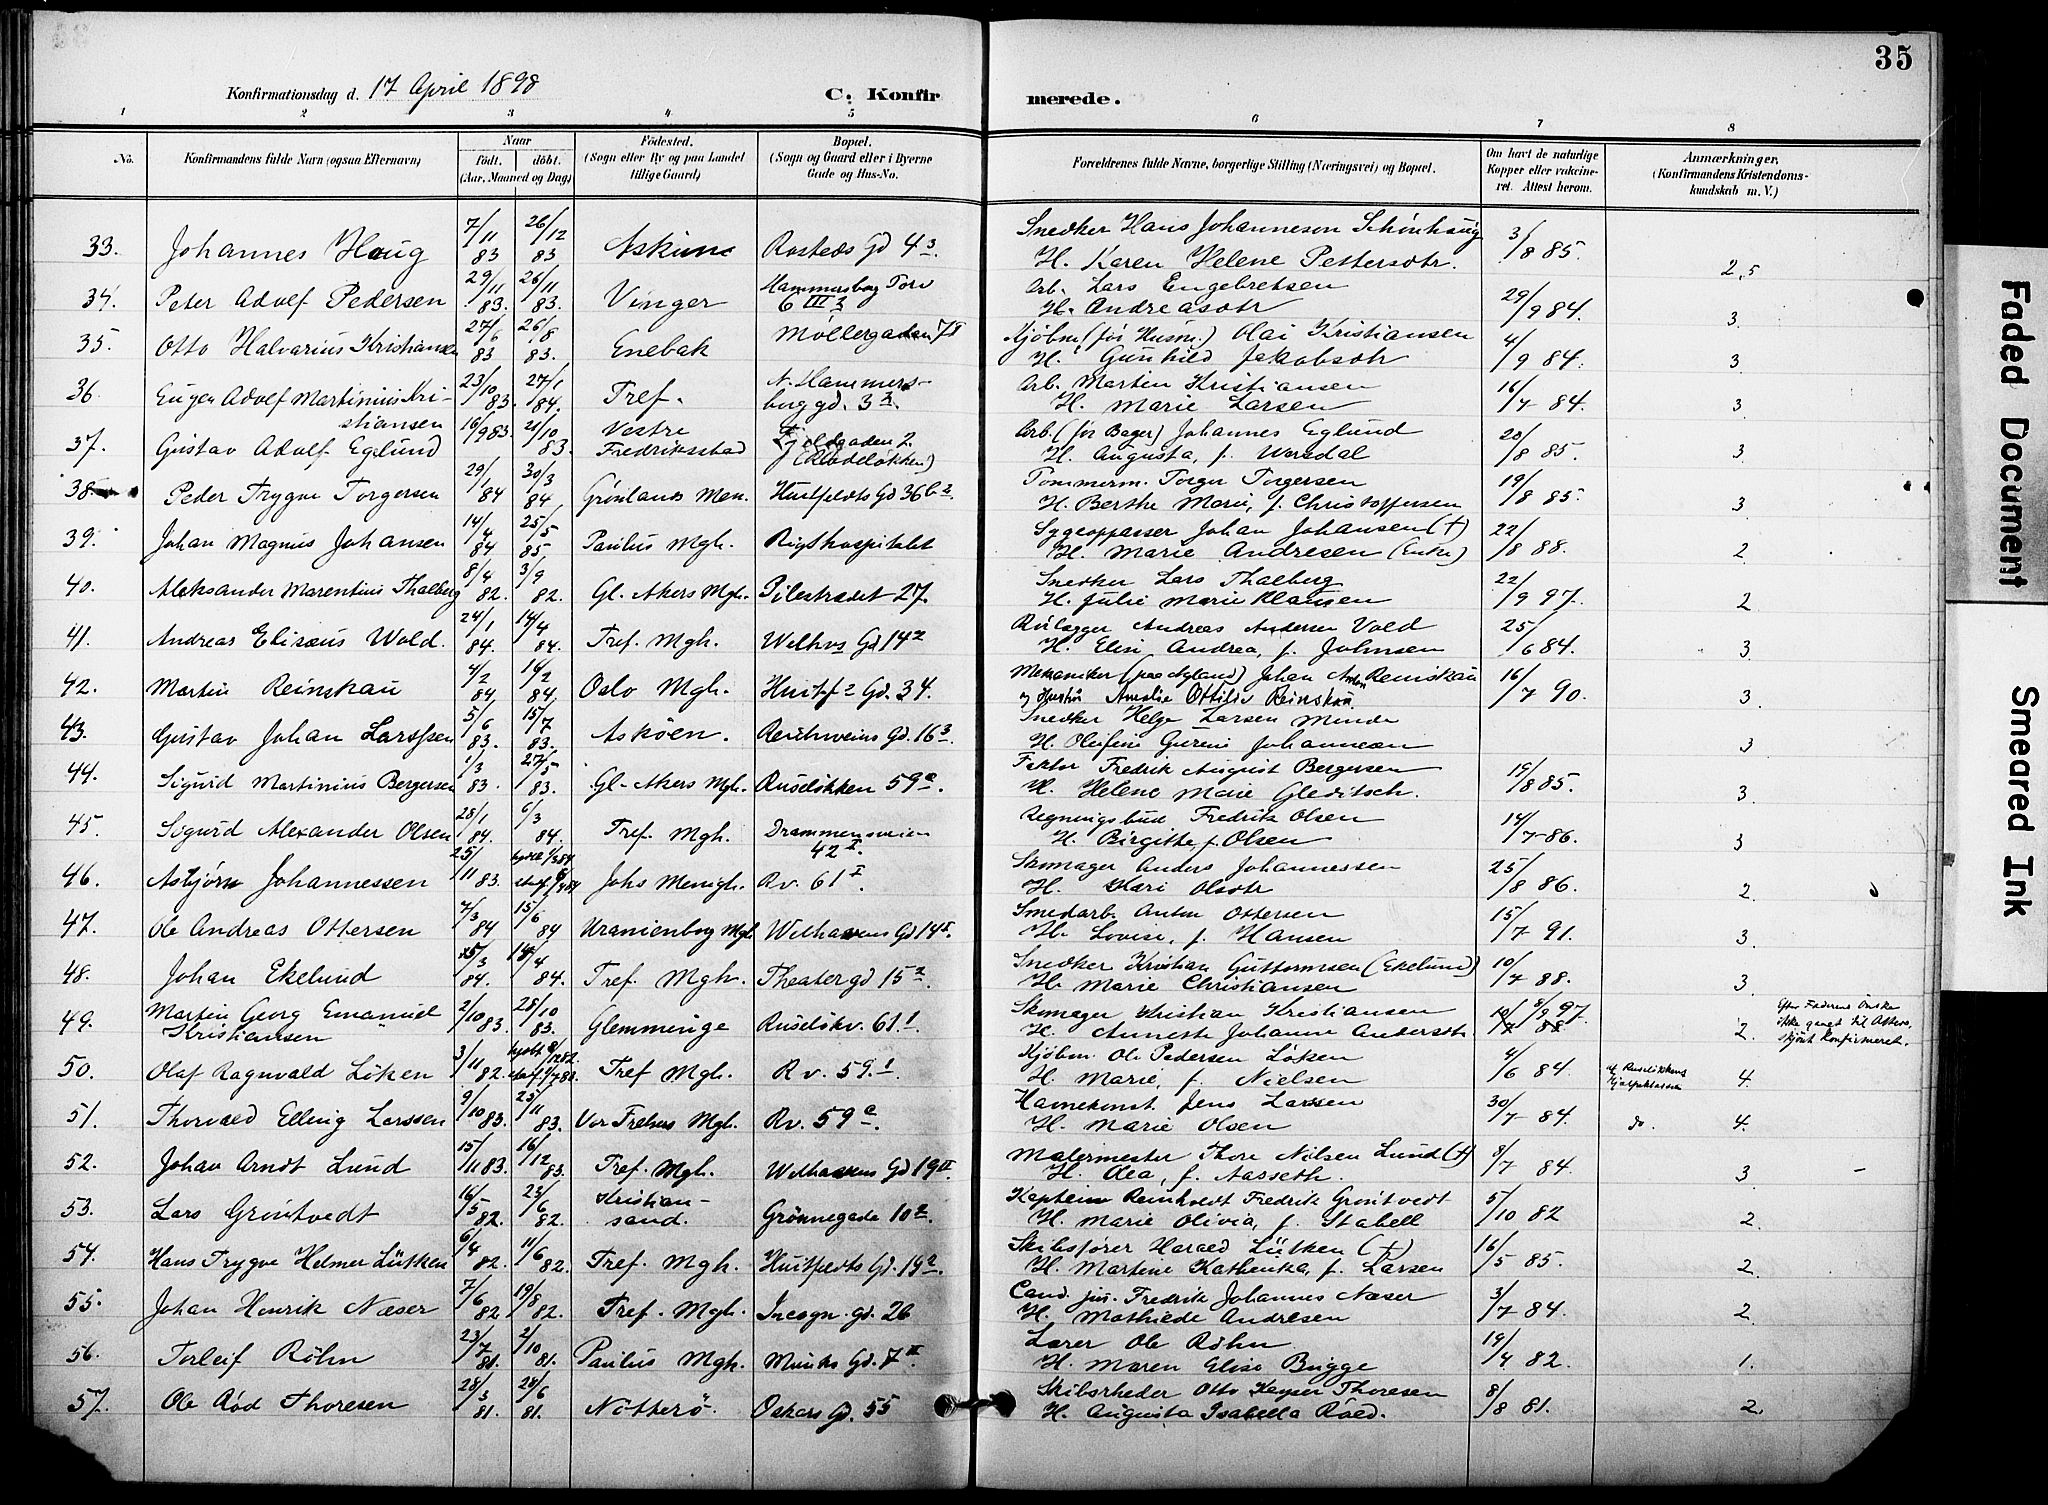 35
Konfirmationsdag d. 17 April 1898
C. Konfirmerede.
1 2 3 4 5 6 7 8
No.
Konfirmandens fulde Navn (ogsaa Efternavn)
Naar
födt. döbt.
(Aar, Maaned og Dag)
Födested.
(Sogn eller By og paa Landet
tillige Gaard)
Bopæl.
(Sogn og Gaard eller i Byerne
Gade og Hus-No.
Forældrenes fulde Navne, borgerlige Stilling (Næringsvei) og Bopæl.
Om havt de naturlige
Kopper eller vakcine-
ret. Attest herom.
Anmærkninger,
(Konfirmandens Kristendoms-
kundskab m. V.)
33. Johannes Haug 7/11 83 26/12 83 Askim Rosteds Gd 4 3. Snedker Hans Johanneson Schönhaug 3/8 85.
H. Karen Helene Pettersdtr. 2,5
34. Peter Adolf Pedersen 29/11 83. 26/11 83. Vinger Hammersborg Torv 6 III 3 Arb. Lars Engebretsen 29/9 84.
H. Andreasdtr 3.
35. Otto Halvarius Kristiansen 27/6 83 26/8 83. Enebak Möllergaden 78 Kjöbm. (för Husm.) Olai Kristiansen 4/9 84.
H. Gunhild Jakobsdtr 3
36. Eugen Adolf Martinius Kri-
stiansen 23/10 83. 27/1 84. Tref. N. Hammers-
borg gd. 3 3. Arb. Martin Kristiansen 16/7 84.
H. Marie Larsen 3
37. Gustav Adolf Eglund 16/9 83. 21/10 83. Vestre
Fredrikstad Fjeldgaden 2. Arb. (för Bager) Johannes Eglund 20/8 85.
H. Augusta, f. Wærdal 3
38. Peder Trygve Torgersen 29/1 84 30/3 84 Grönlands Men. Huitfeldts Gd 36 b 2 Tommerm. Torger Torgersen 19/8 85.
H. Berthe Marie, f. Christoffersen 3
39. Johan Magnus Johansen 14/4 84 25/5 85. Paulus Mgh. Rigshospitalet Sygeopasser Johan Johansen (†) 22/8 88.
H. Marie Andresen (Enke) 2.
40. Aleksander Marentius Thalberg 8/4 82. 3/9 82. Gl. Akers Mgh. Pilestrædet 27. Snedker Lars Thalberg 22/9 97.
H. Julie Marie Klausen 2
41. Andreas Elisæus Wold. 24/1 84. 14/4 84. Tref. Mgh. Welhvs Gd 14 2 Rörlægger Andreas Andersen Vold 25/6 84.
H. Elise Andrea, f. Johnsen 3.
42. Martin Reinskau 4/2 84 14/2 84. Oslo Mgh. Huitf 2 Gd. 34. Mekaniker (paa Nyland) Johan Anton Reinskau 16/7 90.
og Hustru Amalie Ottilie Reinskau 3
43. Gustav Johan Larssen 5/6 83. 15/7 83. Asköen. Reichweins Gd. 16 3. Snedker Helge Larsen Minde
H. Olefine Gurine Johannesen 3
44. Sigurd Martinius Bergersen 1/3 83. 27/5 83. Gl. Akers Mgh. Ruselökken 59 a. Faktor Fredrik August Bergersen 19/8 85.
H. Helene Marie Gleditsch. 3.
45. Sigurd Alexander Olsen 28/1 84. 6/3 84. Tref. Mgh. Drammensveien
42 I. Regningsbud Fredrik Olsen 14/7 86.
H. Birgitte, f. Olsen 3
46. Asbjörn Johannessen 25/11 83. Johs Menigh. Rv. 61 I Skomager Anders Johannessen 25/8 86.
H. Kari Olsdtr 2
47. Ole Andreas Ottersen 7/3 84 15/6 84 Uranienborg Mgh. Welhavens Gd 14 I. Smedarb. Anton Ottersen 15/7 91.
H. Lovise, f. Hansen 3.
48. Johan Ekelund 25/3 84. 14/4 84. Tref. Mgh. Theater gd 15 2 Snedker Kristian Guttormsen (Ekelund) 10/7 88.
H. Marie Christiansen 3.
49. Martin Georg Emanuel
Kristiansen 2/10 83. 28/10 83. Glemminge Ruselökv. 61 I Skomager Kristian Kristiansen 8/9 97.
H. Annette Johanne Andersdtr. 2. Efter Faderens Önske
ikke gaaet til Alters,
skjönt konfirmeret.
50. Olaf Ragnvald Löken 3/11 82. Tref Mgh. Rv. 59. I Kjöbm. Ole Pedersen Löken 4/6 84.
H. Marie, f. Nielsen af Ruselökkens
Hjælpeklasse 4.
51. Thorvald Elling Larssen 9/10 83. 25/11 83. Vor Frelsers Mgh. Rv. 59 a. Havnekonst. Jens Larssen 30/7 84.
H. Marie Olsen do. 4.
52. Johan Arndt Lund 15/11 83. 16/12 83. Tref. Mgh. Welhavens Gd 19 II Malermester Thore Nilsen Lund (†) 8/7 84.
H. Olea, f. Aasseth. 3
53. Lars Gröntvedt 16/5 82. 23/6 82. Kristian-
sand. Grönnegade 10 2. Kaptein Reinholdt Fredrik Gröntvedt 5/10 82
H. Marie Olivia, f. Stabell 2.
54. Hans Trygve Helmer Lütken 6/4 82. 11/6 82. Tref. Mgh. Huitfeldts Gd. 19 a. Skibsförer Harald Lütken (†) 16/5 85.
H. Martine Kathinka, f. Larsen 2.
55. Johan Henrik Næser 7/6 82 19/8 82. Tref. Mgh. Incogn. gd. 26 Cand. jur. Fredrik Johannes Næser 3/7 84.
H. Mathilde Andresen 2.
56. Torleif Röhn 23/7 81. 2/10 81. Paulus Mgh. Munks Gd. 7 II. Lærer Ole Röhn 19/4 82.
H. Maren Elise Bugge 1.
57. Ole Röd Thoresen 28/3 81. 24/6 81. Nötterö. Oskars Gd. 55 Skibsrheder Otto Keyser Thoresen 8/8 81.
H. Augusta Isabella Röed. 2.
Faded Document
Smeared Ink